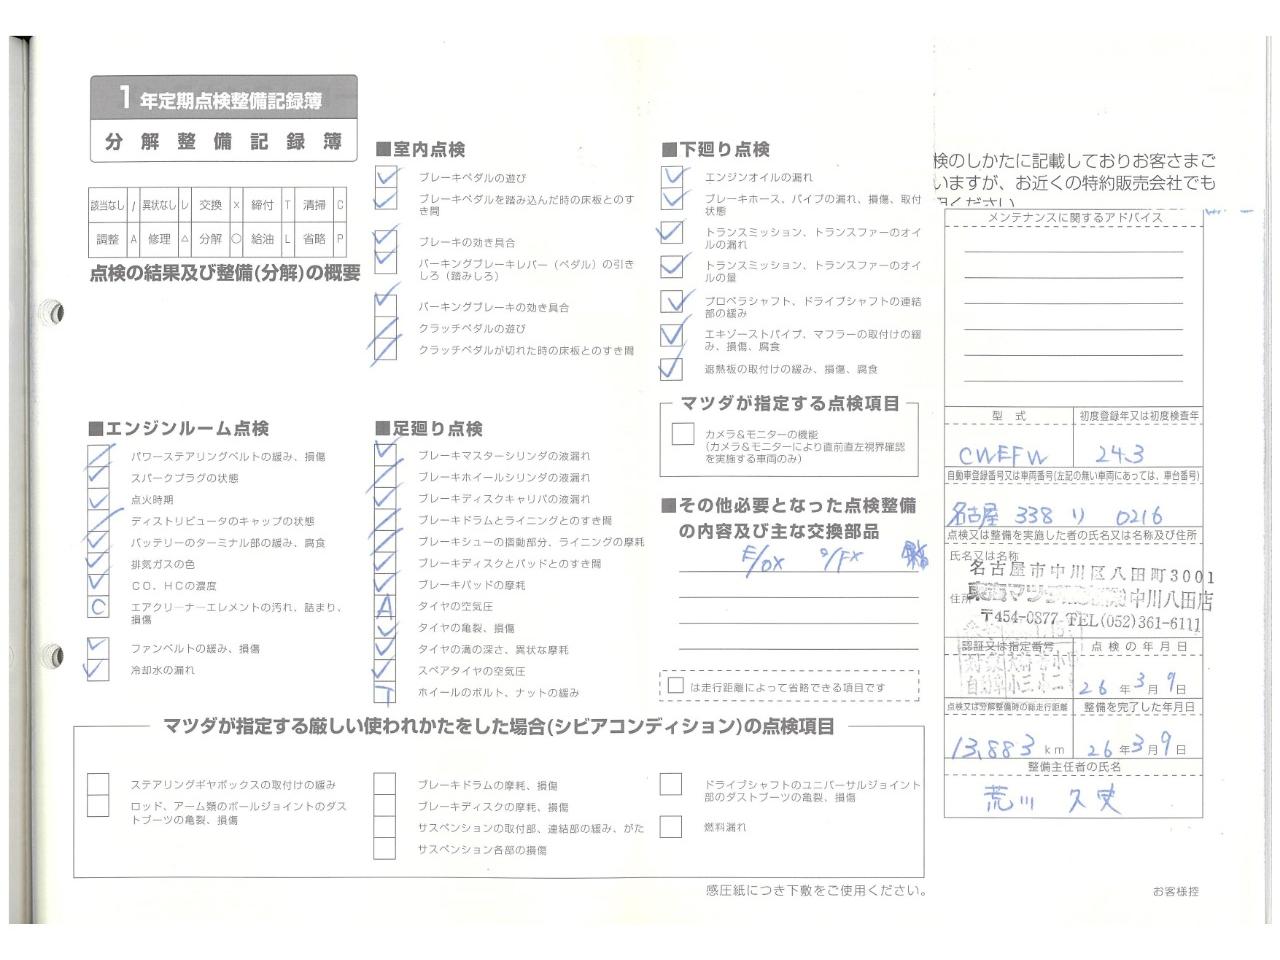 1年定期点検整備記録簿
分解整備記録簿
該当なし / 異状なし レ 交換 × 締付 T 清掃 C
調整 A 修理 △ 分解 ○ 給油 L 省略 P
点検の結果及び整備(分解)の概要
■エンジンルーム点検
パワーステアリングベルトの緩み、損傷
スパークプラグの状態
点火時期
ディストリビュータのキャップの状態
バッテリーのターミナル部の緩み、腐食
排気ガスの色
CO、HCの濃度
C エアクリーナーエレメントの汚れ、詰まり、
損傷
ファンベルトの緩み、損傷
冷却水の漏れ
■室内点検
ブレーキペダルの遊び
ブレーキペダルを踏み込んだ時の床板とのす
き間
ブレーキの効き具合
パーキングブレーキレバー（ペダル）の引き
しろ（踏みしろ）
パーキングブレーキの効き具合
クラッチペダルの遊び
クラッチペダルが切れた時の床板とのすき間
■足廻り点検
ブレーキマスターシリンダの液漏れ
ブレーキホイールシリンダの液漏れ
ブレーキディスクキャリパの液漏れ
ブレーキドラムとライニングとのすき間
ブレーキシューの摺動部分、ライニングの摩耗
ブレーキディスクとパッドとのすき間
ブレーキパッドの摩耗
A タイヤの空気圧
タイヤの亀裂、損傷
タイヤの溝の深さ、異状な摩耗
スペアタイヤの空気圧
T ホイールのボルト、ナットの緩み
■下廻り点検
エンジンオイルの漏れ
ブレーキホース、パイプの漏れ、損傷、取付
状態
トランスミッション、トランスファーのオイ
ルの漏れ
トランスミッション、トランスファーのオイ
ルの量
プロペラシャフト、ドライブシャフトの連結
部の緩み
エキゾーストパイプ、マフラーの取付けの緩
み、損傷、腐食
遮熱板の取付けの緩み、損傷、腐食
マツダが指定する点検項目
カメラ＆モニターの機能
（カメラ＆モニターにより直前直左視界確認
を実施する車両のみ）
■その他必要となった点検整備
の内容及び主な交換部品
は走行距離によって省略できる項目です
マツダが指定する厳しい使われかたをした場合(シビアコンディション)の点検項目
ステアリングギヤボックスの取付けの緩み
ロッド、アーム類のボールジョイントのダス
トブーツの亀裂、損傷
ブレーキドラムの摩耗、損傷
ブレーキディスクの摩耗、損傷
サスペンションの取付部、連結部の緩み、がた
サスペンション各部の損傷
ドライブシャフトのユニバーサルジョイント
部のダストブーツの亀裂、損傷
燃料漏れ
感圧紙につき下敷をご使用ください。
検のしかたに記載しておりお客さまご
いますが、お近くの特約販売会社でも
用ください
メンテナンスに関するアドバイス
型式 初度登録年又は初度検査年
CWEFW 24.3
自動車登録番号又は車両番号(左記の無い車両にあっては、車台番号)
名古屋 338 り 0216
点検又は整備を実施した者の氏名又は名称及び住所
氏名又は名称
名古屋市中川区八田町3001
住所
中川八田店
〒454-0877 TEL(052)361-6111
認証又は指定番号 点検の年月日
26年3月9日
点検又は分解整備時の総走行距離 整備を完了した年月日
13,883 km 26年3月9日
整備主任者の氏名
荒川 久史
お客様控